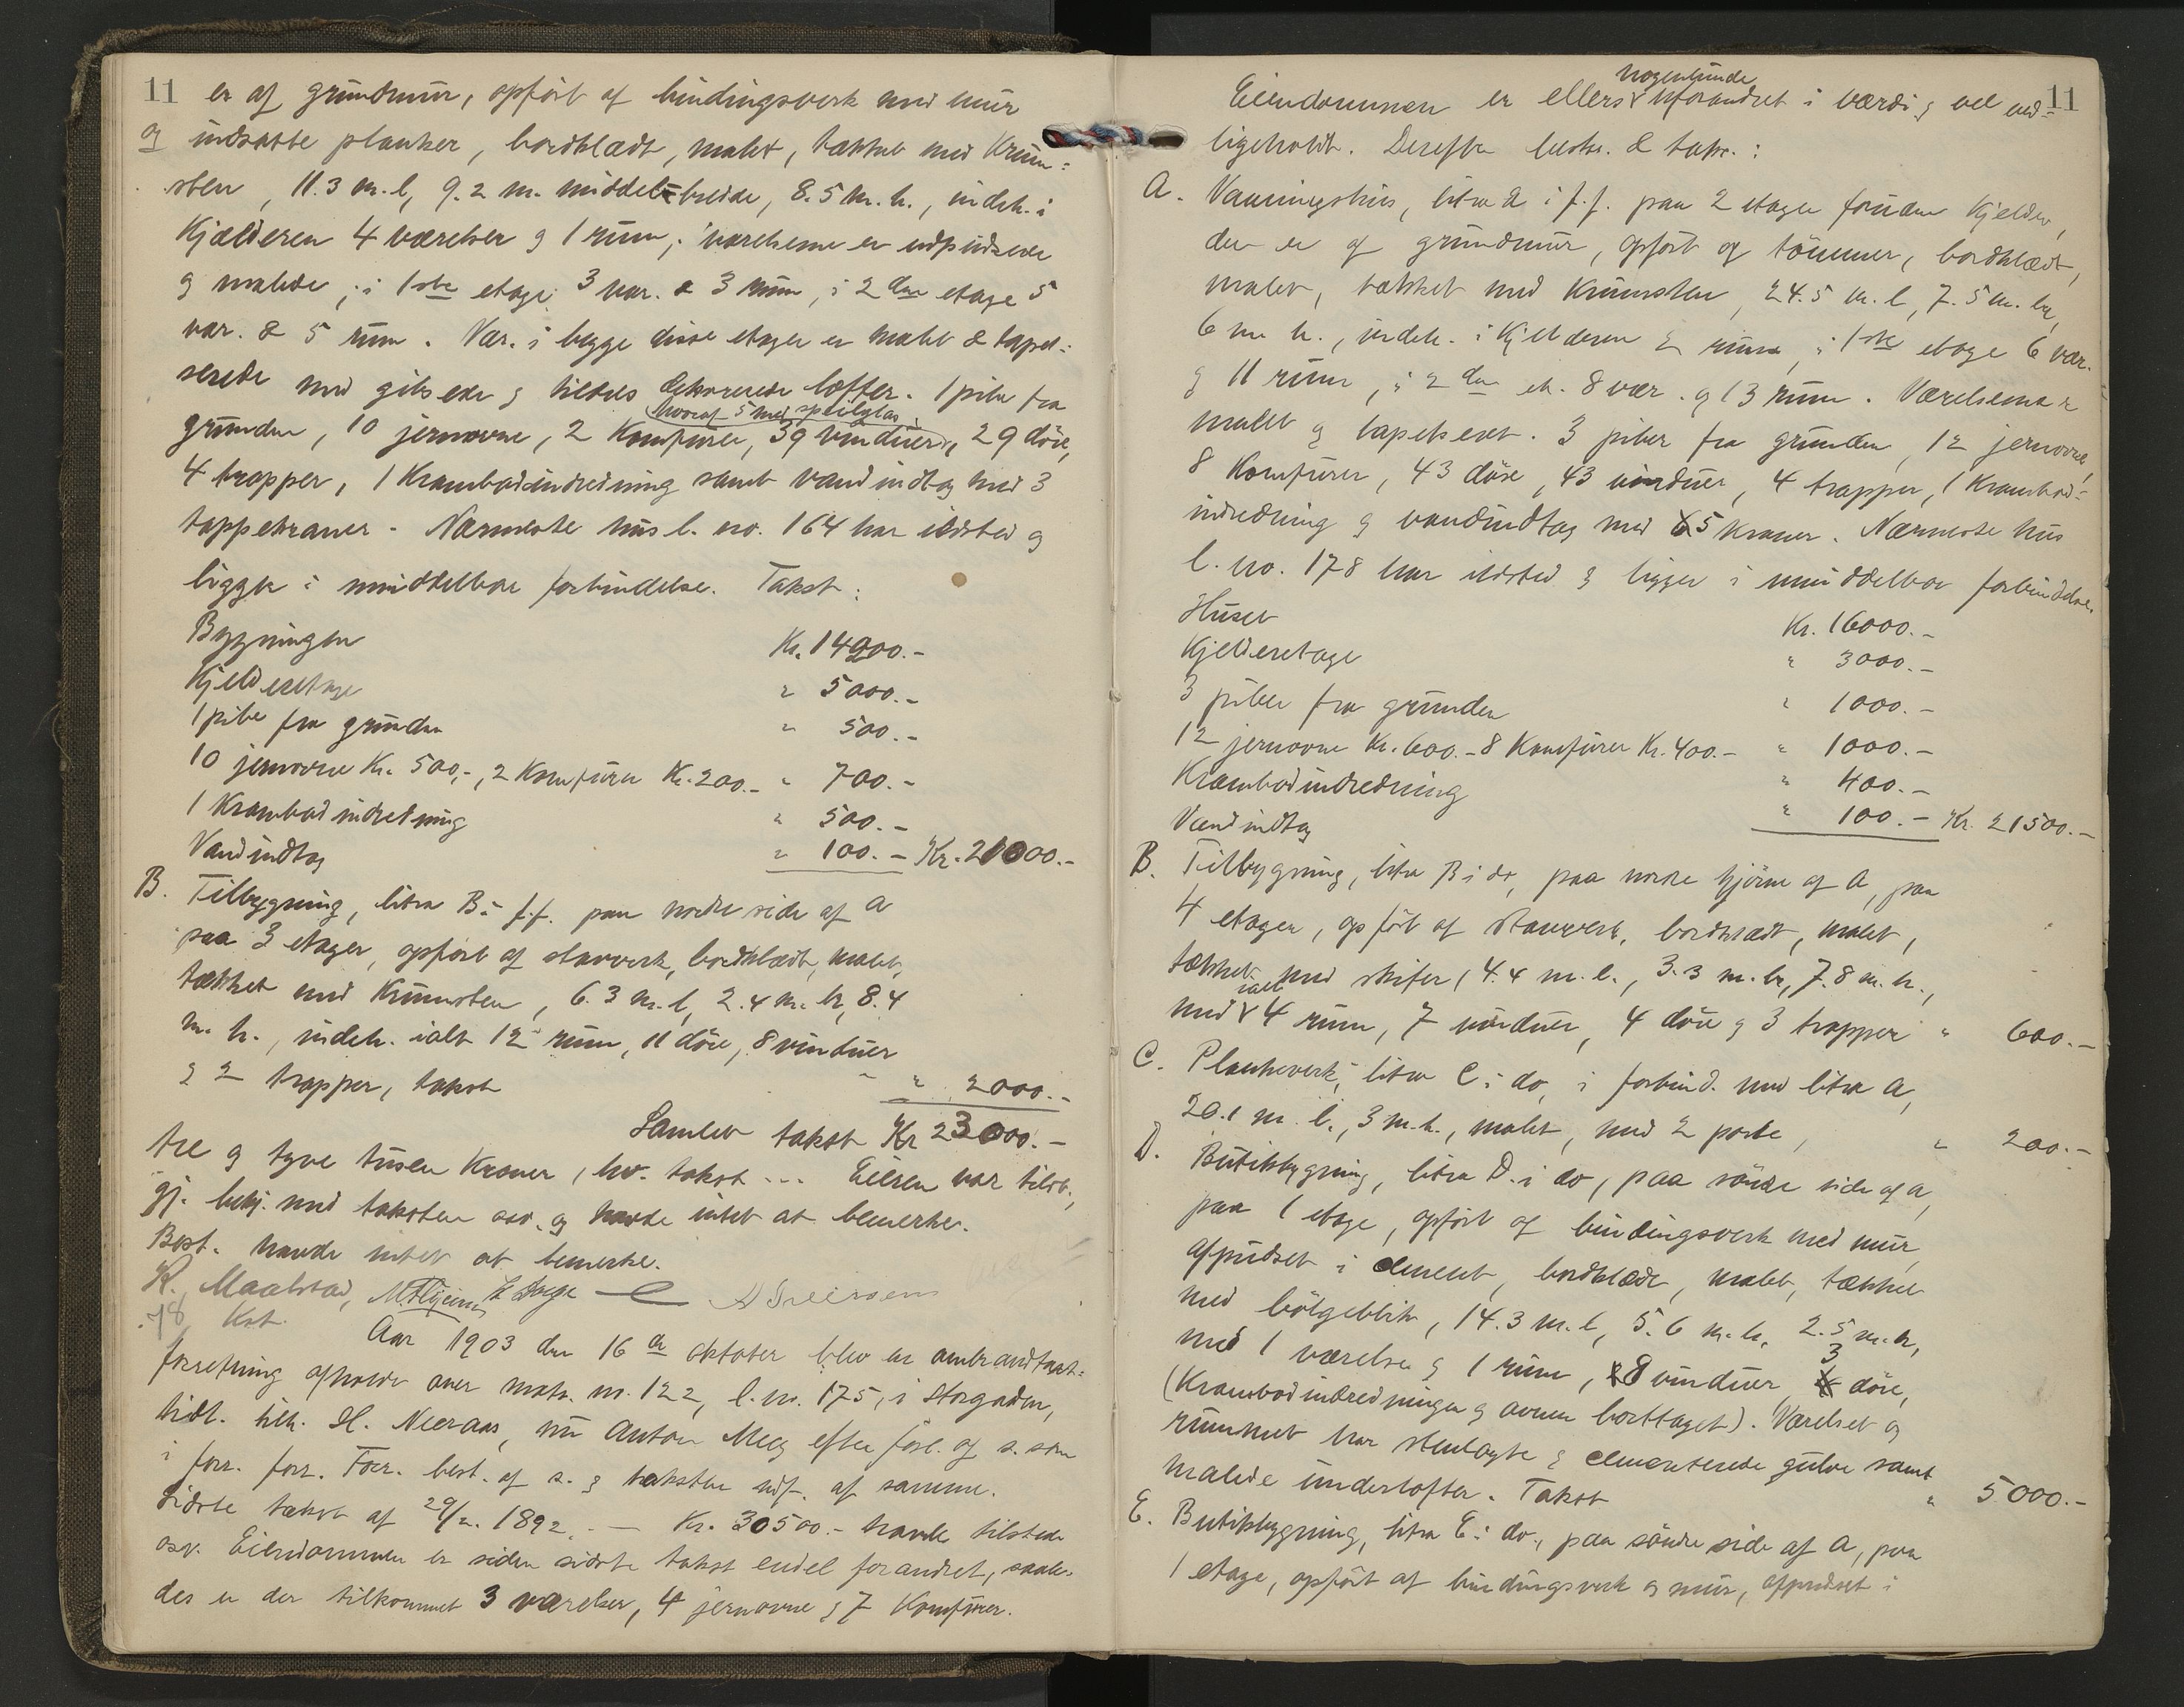 11
er af grundmur, opført af bindingsverk med mur
og indsatte planker, bordklædt, malet, tækket med Krum=
sten, 11.3 m. l, 9.2 m. middelbreide, 8.5 m. h., indeh. i
Kjælderen 4 værelser og 1 rum; værelserne er udpudsede
og malede; i 1ste etage 3 vær. & 3 rum, i 2den etage 5
vær. & 5 rum. Vær. i begge disse etager er malet & tapet=
serede med gibsede og tildels dekorerede lofter. 1 pibe fra
hvoraf 5 med speilglas
grunden, 10 jernovne, 2 Komfurer, 39 vinduer, 29 døre,
4 trapper, 1 Krambodindredning samt vandindtag med 3
tappekraner. Nærmeste hus l. no. 164 har ildsted og
ligger i umiddelbar forbindelse. Takst:
Bygningen Kr. 14200.-
Kjelderetage " 5000.-
1 pibe fra grunden " 500.-
10 jernovne Kr. 500,-, 2 Komfurer Kr. 200.- " 700.-
1 Krambodindredning " 500.-
Vandindtag " 100.- Kr. 21000.-
B. Tilbygning, litra B i f.f. paa nordre side af A
paa 3 etager, opført af stavverk, bordklædt, malet,
tækket med Krumsten, 6.3 m. l, 2.4 m. br, 8.4
m. h., indeh. ialt 12 rum, 11 døre, 8 vinduer
og 2 trapper, takst " 2000.-
Samlet takst Kr 23000.-
tre og tyve tusen Kroner, hv. takst ... Eieren var tilst.,
gj. bekj. med taksten osv. og havde intet at bemerke.
Best. havde intet at bemerke.
K. Maalstad,
Kst.
Aar 1903 den 16de oktober blev en ombrandtaxt=
forretning afholdt over matr. nr. 122, l. nr. 175, i Storgaden,
tidl. tilh. H. Neeraas, nu Anton Meeg efter forl. af s. som
i forr. forr. Forr. best. af s. og taksten udf. af samme.
Sidste takst af 29/2. 1892 .- — Kr. 30500.- havde tilstede
osv. Eiendommen er siden sidste takst endel forandret, saale-
des er der tilkommet 3 værelser, 4 jernovne og 7 Komfurer.
11
nogenlunde
Eiendommen er ellers uforandret i værdi og vel ved=
ligeholdt. Derefter beskr. & takse.:
A. Vaaningshus, litra A i f.f. paa 2 etager foruden Kjelder,
der er af grundmur, opført af tømmer, bordklædt,
malet, tækket med Krumsten, 24.5 m. l, 7.5 m. br,
6 m h., indeh. i Kjelderen 2 rum, i 1ste etage 6 vær.
og 11 rum, i 2den et. 8 vær. og 13 rum. Værelserne er
malet og tapetseret. 3 piber fra grunden, 12 jernovne,
8 Komfurer, 43 døre, 43 vinduer, 4 trapper, 1 Krambod=
indredning og vandindtag med 5 Kraner. Nærmeste hus
l. no. 178 har ildsted og ligger i umiddelbar forbindelse.
Huset Kr. 16000.-
Kjelderetage " 3000.-
3 piber fra grunden " 1000.-
12 jernovne Kr. 600.- 8 Komfurer Kr. 400.- " 1000.-
Krambodindredning " 400.-
Vandindtag " 100.- Kr. 21500.-
B. Tilbygning, litra B i do, paa nordre hjørne af A, paa
4 etager, opført af stavverk, bordklædt, malet,
tækket med skifer, 4.4 m. l., 3.3 m. br, 7.8 m. h.,
ialt
med 4 rum, 7 vinduer, 4 døre og 3 trapper " 600.-
C. Plankeverk, litra C i do, i forbind. med litra A,
20.1 m. l., 3 m. h., malet, med 2 porte, " 200.-
D. Butikbygning, litra D. i do, paa søndre side af A,
paa 1 etage, opført af bindingsverk med mur,
afpudset i cement, bordklædt, malet, tækket
med bølgeblik, 14.3 m. l, 5.6 m. br, 2.5 m. h,
3
med 1 værelse og 1 rum, 8 vinduer, døre,
(Krambodindredningen og ovnen borttaget). Værelset og
rummet har stenlagte og cementerede gulve samt
malede underlofter. Takst " 5000.-
E. Butikbygning, litra E i do., paa søndre side af A, paa
1 etage, opført af bindingsverk og mur, afpudset i